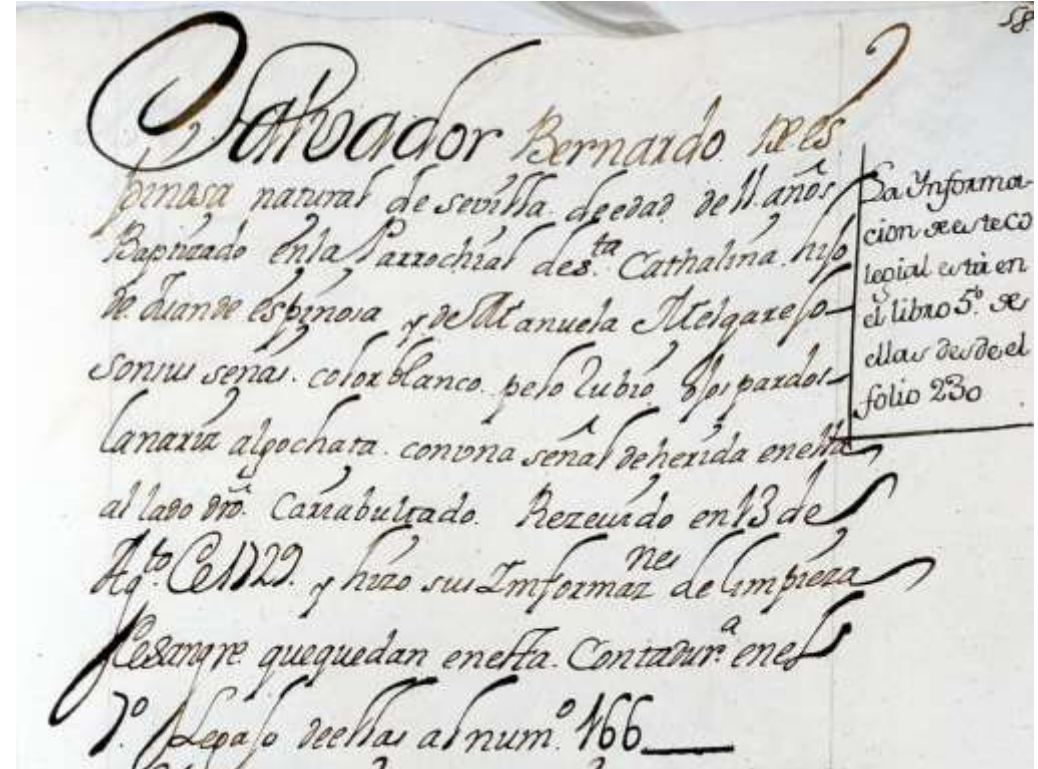 58.
Salvador Bernardo de es
pinosa natural de sevilla. de edad de 11. años
Baptizado en la Parrochial de s.ta Cathalina. hijo
de Juan de espinosa y de Manuela Melgarejo
son sus señas. color blanco. pelo Rubio ojos pardos
la nariz algo chata. con una señal de herida en ella
al lado dro. Cariabultado. Rezeuido en 13 de
Ag.to de 1729. y hizo sus Imformaz.nes de limpieza
de sangre. que quedan en esta. Contadur.a en el
7.º Legajo de ellas al num.º 166
La Ynforma-
cion de este co
legial està en
el libro 5.º de
ellas desde el
folio 230